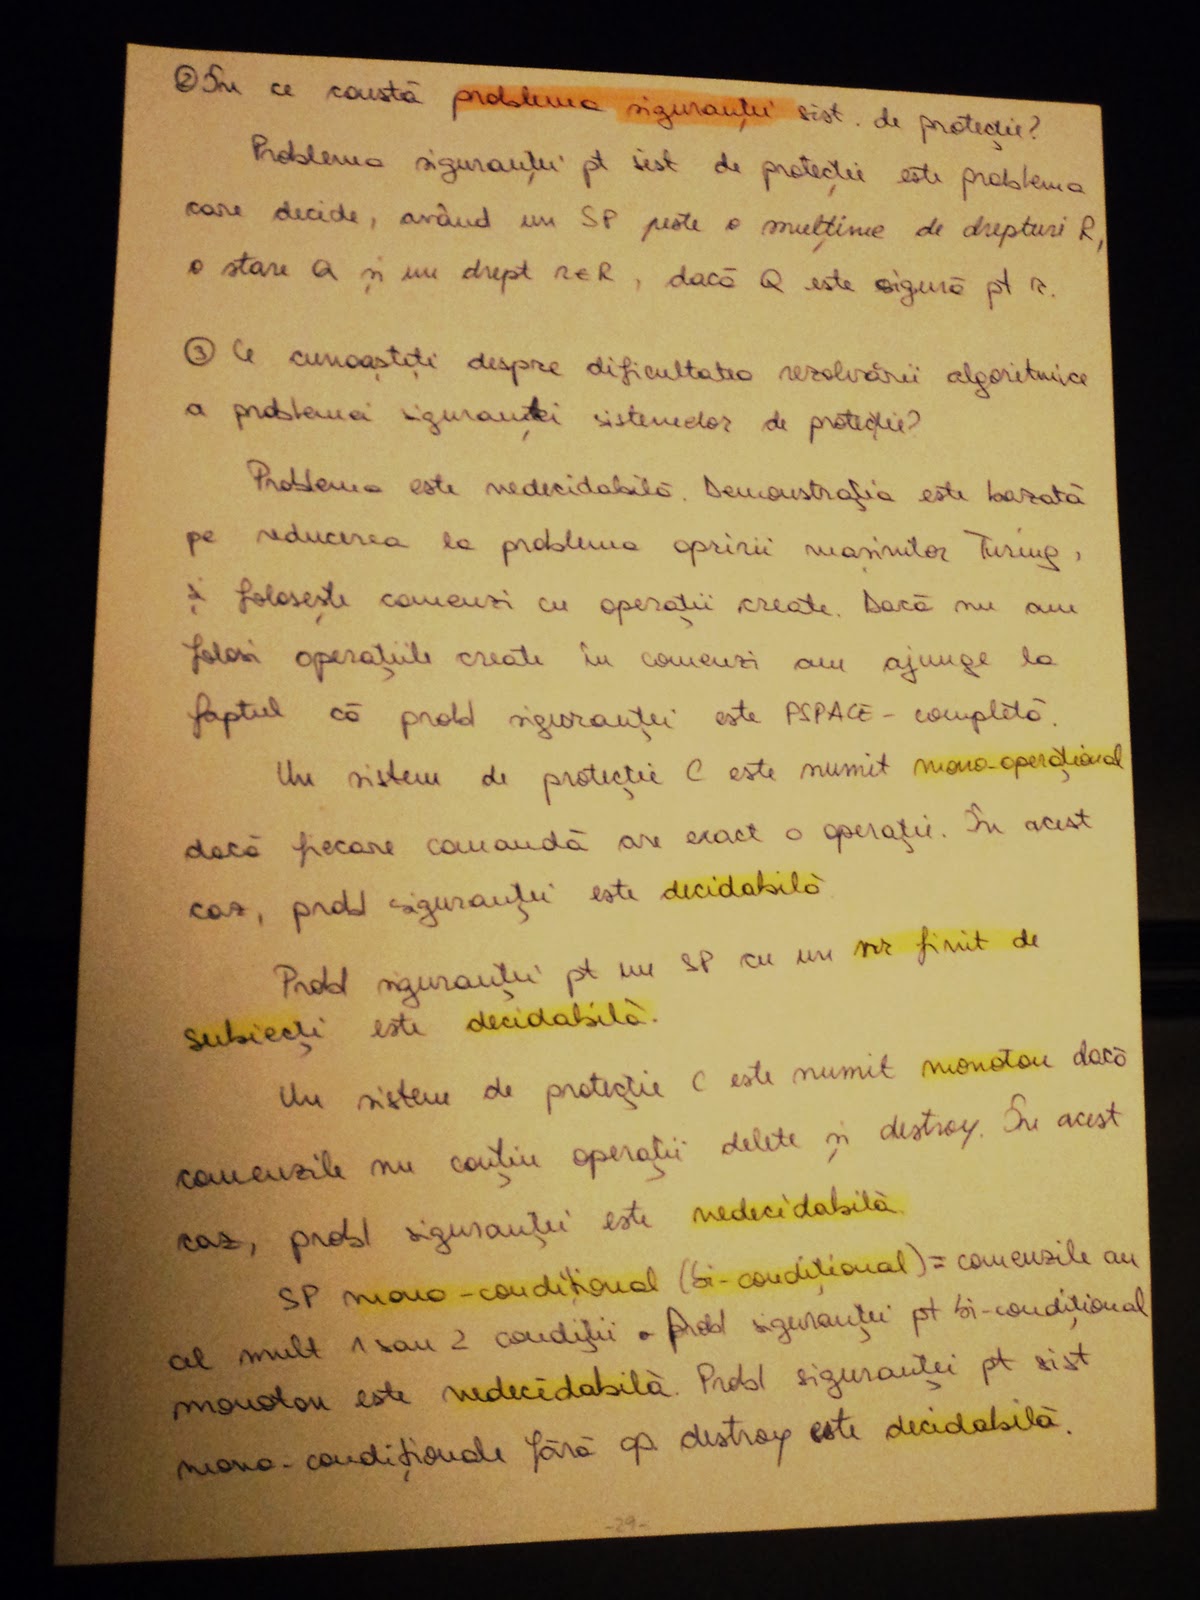 ② În ce constă problema siguranței sist. de protecție?
Problema siguranței pt sist de protecție este problema
care decide, având un SP peste o mulțime de drepturi R,
o stare Q și un drept r∈R, dacă Q este sigură pt r.
③ Ce cunoașteți despre dificultatea rezolvării algoritmice
a problemei siguranței sistemelor de protecție?
Problema este nedecidabilă. Demonstrația este bazată
pe reducerea la problema opririi mașinilor Turing,
și folosește comenzi cu operații create. Dacă nu am
folosi operațiile create în comenzi am ajunge la
faptul că probl siguranței este PSPACE-completă.
Un sistem de protecție C este numit mono-operațional
dacă fiecare comandă are exact o operație. În acest
caz, probl siguranței este decidabilă
Probl siguranței pt un SP cu un nr finit de
subiecți este decidabilă.
Un sistem de protecție C este numit monoton dacă
comenzile nu conțin operații delete și destroy. În acest
caz, probl siguranței este nedecidabilă.
SP mono-condițional (bi-condițional) = comenzile au
cel mult 1 sau 2 condiții. Probl siguranței pt bi-condițional
monoton este nedecidabilă. Probl siguranței pt sist
mono-condiționale fără op. destroy este decidabilă.
-29-